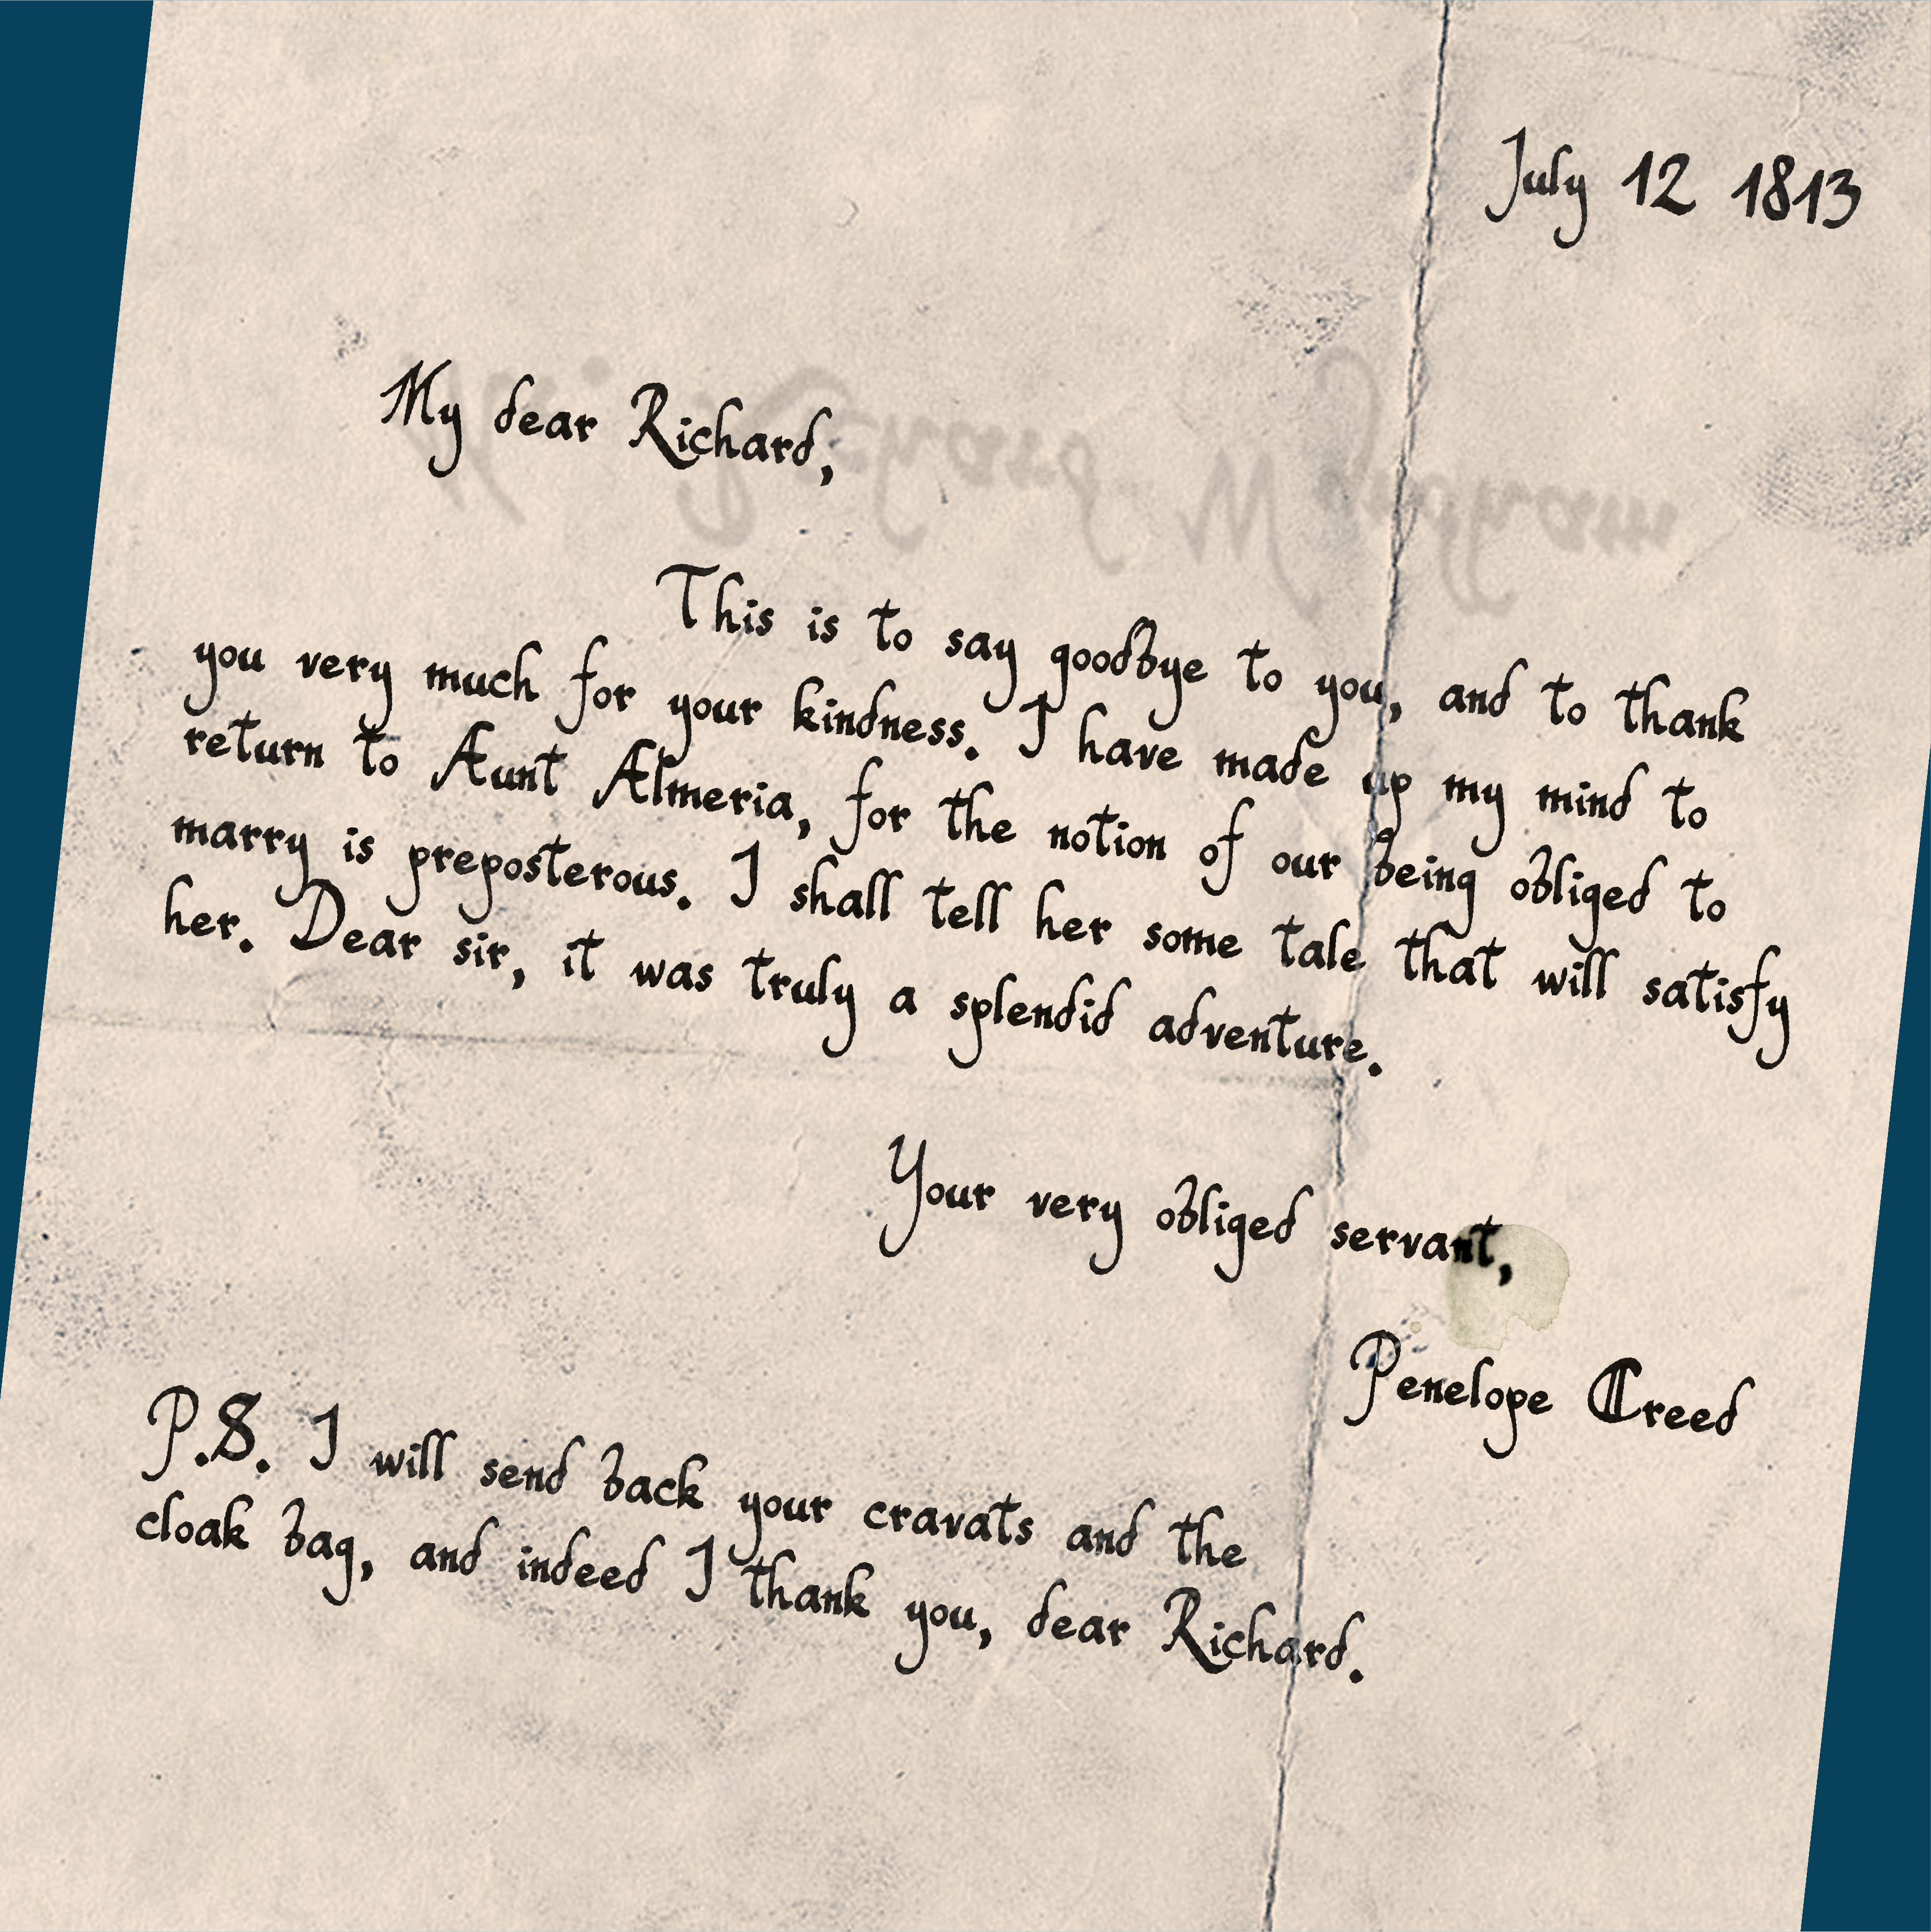 July 12 1813
My dear Richard,
Mr. Richard Wyndham
This is to say goodbye to you, and to thank
you very much for your kindness. I have made up my mind to
return to Aunt Almeria, for the notion of our being obliged to
marry is preposterous. I shall tell her some tale that will satisfy
her. Dear sir, it was truly a splendid adventure.
Your very obliged servant,
Penelope Creed
P.S. I will send back your cravats and the
cloak bag, and indeed I thank you, dear Richard.